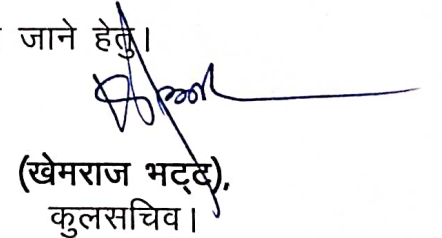 जाने हेतु।
(खेमराज भट्ट),
कुलसचिव।